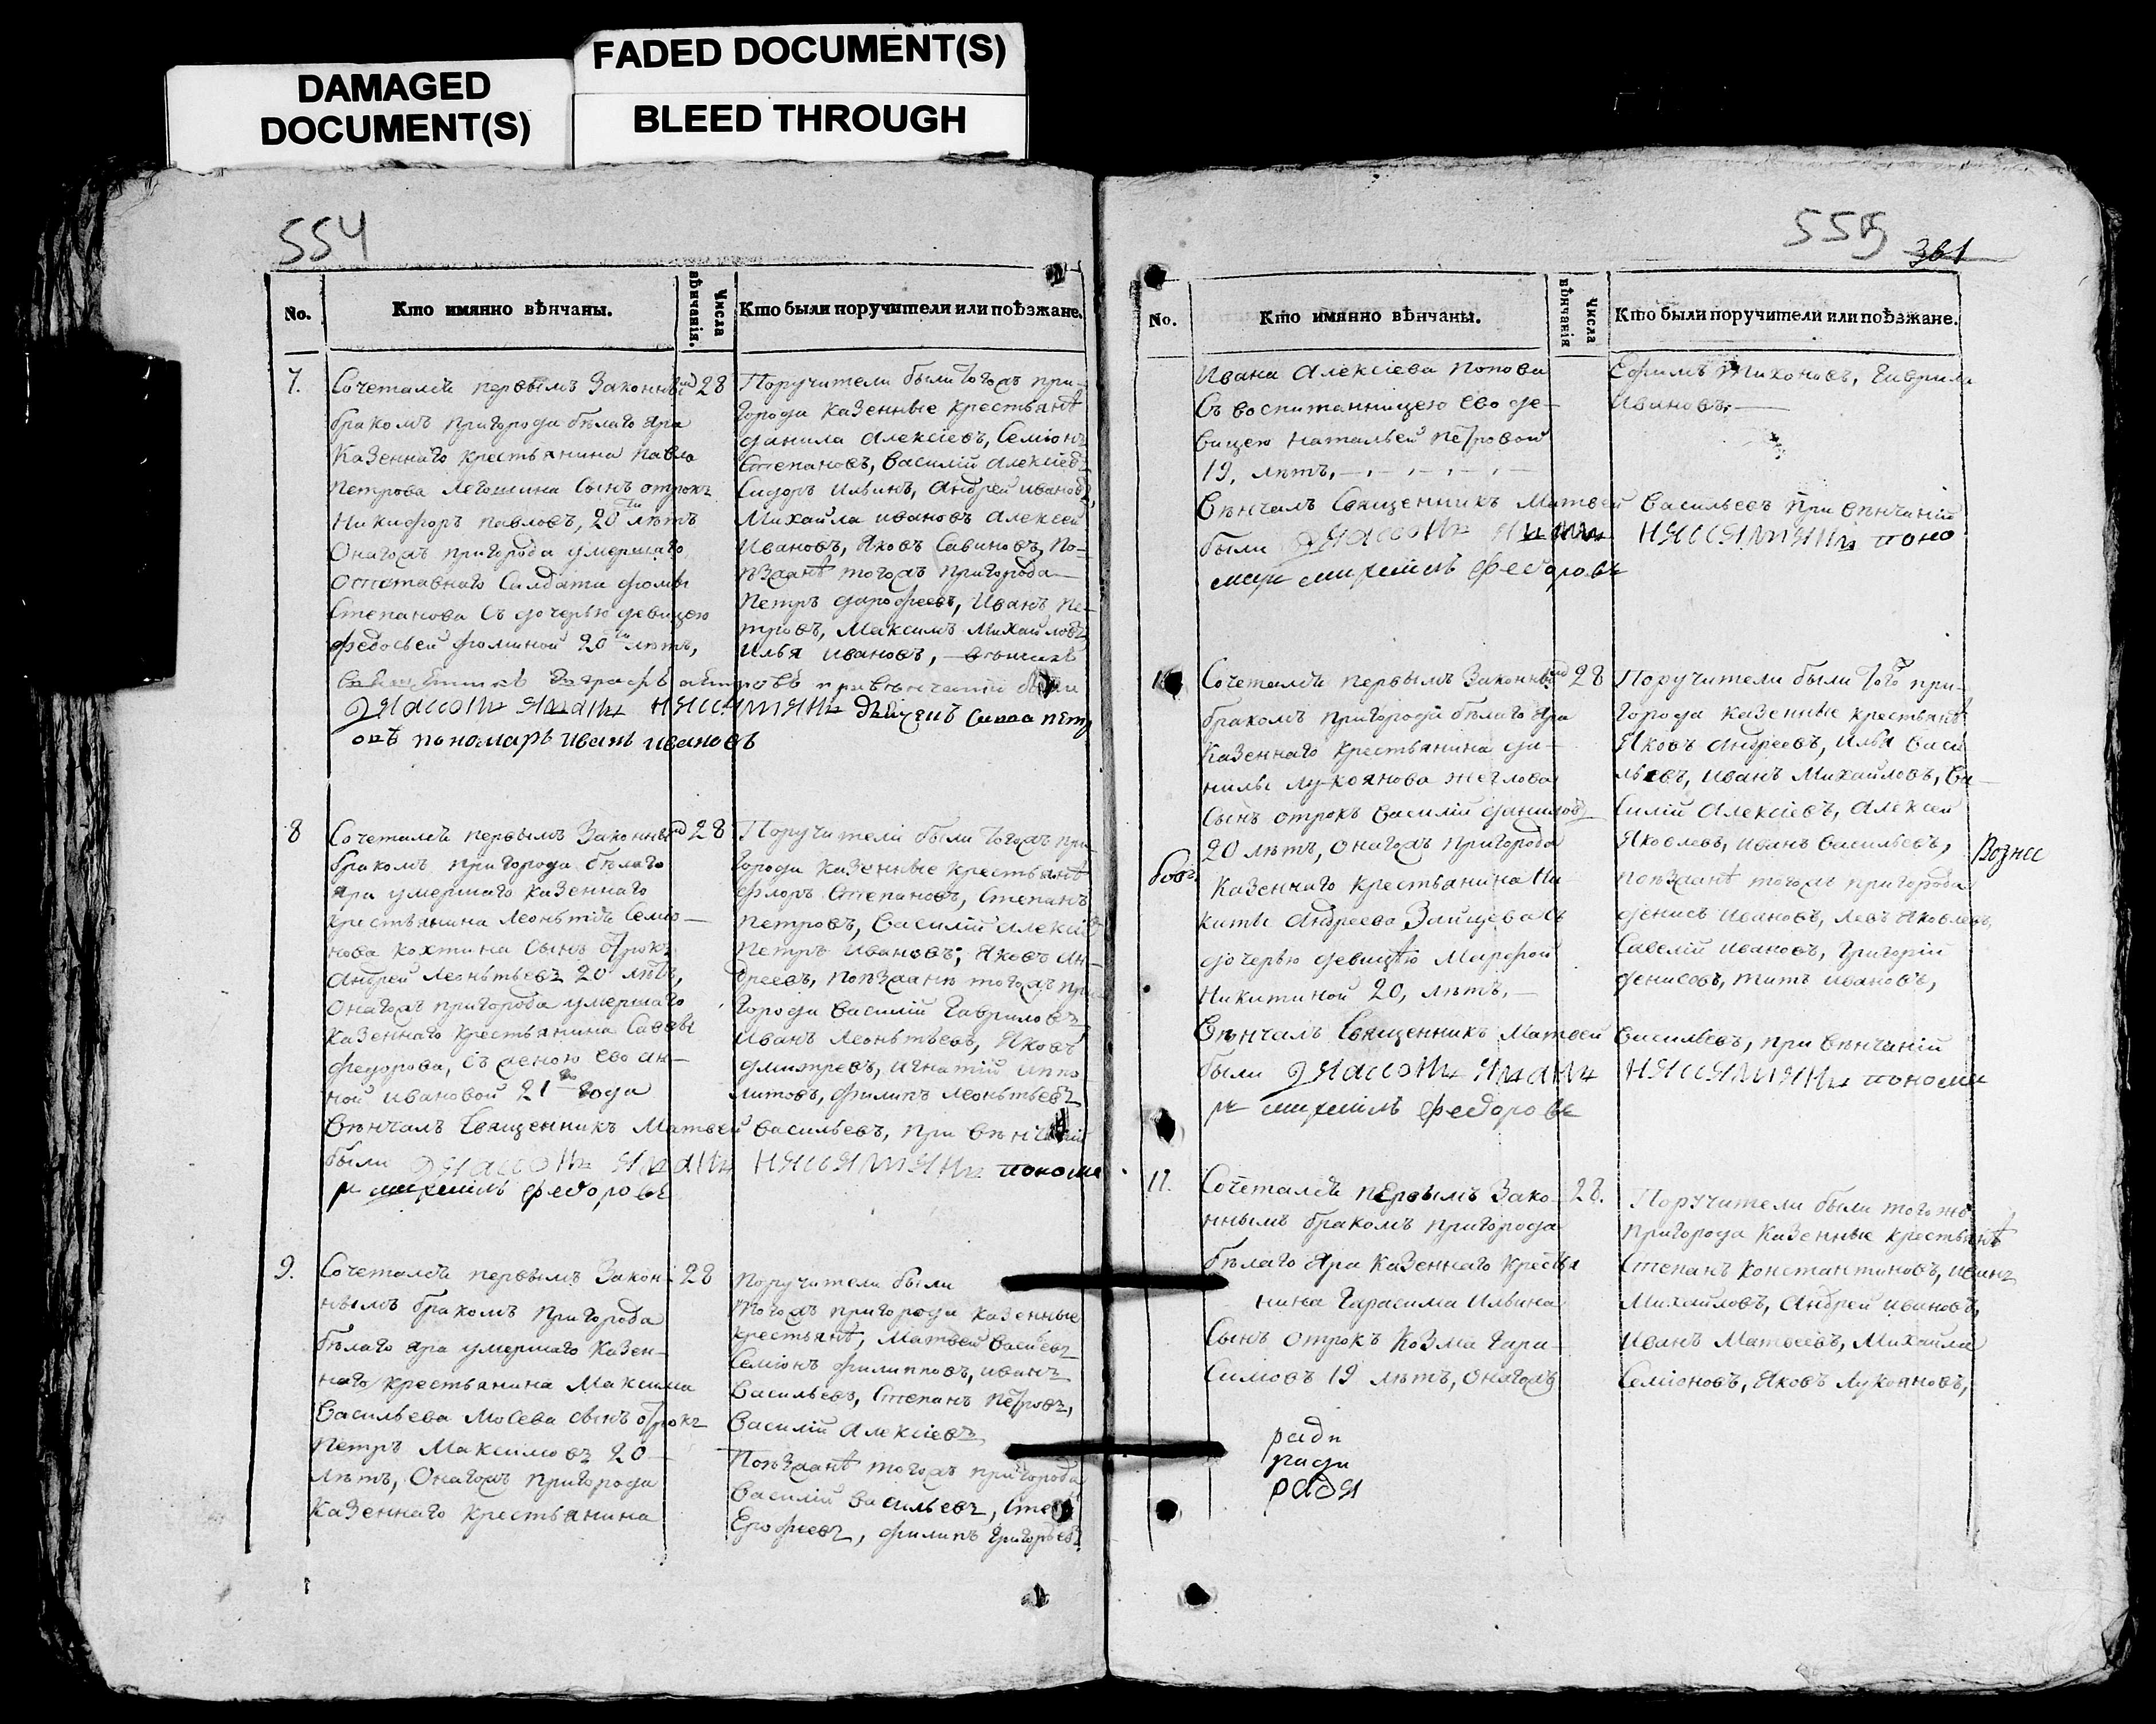 DAMAGED
DOCUMENT(S)
FADED DOCUMENT(S)
BLEED THROUGH
554
No.
Кто имянно вѣнчаны.
Числа вѣнчанія.
Кто были поручители или поѣзжане.
7.
Сочетался первымъ Законны
бракомъ пригорода бѣлаго Яра
Казеннаго крестьянина Павла
Петрова Легошина Сынъ отрокъ
Никифоръ Павловъ, 20 лѣтъ
Онагожъ пригорода умершаго
отставнаго Салдата Фомы
Степанова Съ дочерью девицею
Федосьей Фоминой 20 лѣтъ,
28
Поручители были тогожъ при-
города казенные крестьянѣ
Данила Алексіевъ, Семіонъ
Степановъ, Василій Алексіевъ
Сидоръ Ильинъ, Андрей Ивановъ,
Михайла Ивановъ Алексей
Ивановъ, Яковъ Савиновъ, По-
ѣзжанѣ тогожъ пригорода
Петръ Дарофеевъ, Иванъ Пе-
тровъ, Максимъ Михайловъ
Илья Ивановъ,
при вѣнчаніи были
онъ пономарь Иванъ Ивановъ
8
Сочетался первымъ Законны
бракомъ пригорода бѣлаго
Яра умершаго казеннаго
крестьянина Леонтья Семіо-
нова Кохтина Сынъ отрокъ
Андрей Леонтьевъ 20 лѣтъ,
Онагожъ пригорода умершаго
казеннаго крестьянина Саввы
Федорова, Съ женою ево Ан-
ной Ивановой 21 года
28
Поручители были тогожъ при
города казенные крестьянѣ
Флоръ Степановъ, Степанъ
Петровъ, Василій Алексіевъ
Петръ Ивановъ, Яковъ Ан-
дреевъ, Поѣзжанѣ тогожъ при
города Василій Гавриловъ
Иванъ Леонтьевъ, Яковъ
Дмитревъ, Игнатій Иппо
литовъ, Филипъ Леонтьевъ
Вѣнчалъ Священникъ Матвей Васильевъ, при вѣнчаніи
были понома
рь михаилъ федоровъ
9.
Сочетался первымъ Закон-
нымъ бракомъ Пригорода
бѣлаго Яра умершаго Казен-
наго крестьянина Максима
Васильева Мосева сынъ отрокъ
Петръ Максимовъ 20
лѣтъ, Онагожъ пригорода
Казеннаго крестьянина
28
Поручители были
тогожъ пригорода казенные
крестьянѣ, Матвей Васильевъ
Семіонъ Филипповъ, Иванъ
Васильевъ, Степанъ Петровъ,
Василій Алексіевъ
Поѣзжанѣ тогожъ пригорода
Василій Васильевъ,
Ерофеевъ, Филипъ Григорьевъ
555
361
No.
Кто имянно вѣнчаны.
Числа вѣнчанія
Кто были поручители или поѣзжане.
Ивана Алексіева Попова
Съ воспитанницею ево де-
вицею Натальей Петровой
19, лѣтъ,
Ефимъ Тихоновъ, Гаврила
Ивановъ.
Вѣнчалъ Священникъ Матвей Васильевъ при вѣнчаніи
были поно
марь михаилъ федоровъ
Сочетался первымъ Законны
бракомъ пригорода бѣлаго Яра
Казеннаго крестьянина Да-
нилы Лукоянова Жеглова
Сынъ отрокъ Василій Даниловъ
20 лѣтъ, онагожъ пригорода
Казеннаго крестьянина Ни
киты Андреева Зайцева Съ
дочерью девицѣю Марфой
Никитиной 20, лѣтъ.
28
Поручители были того при-
города казенные крестьянѣ
Яковъ Андреевъ, Илья Васи
льевъ, Иванъ Михайловъ, Ва-
силій Алексіевъ, Алексей
Яковлевъ, Иванъ Васильевъ,
поѣзжанѣ тогожъ пригорода
Денисъ Ивановъ, Левъ Яковлевъ,
Савелій Ивановъ, Григорій
Денисовъ, Титъ Ивановъ,
Вознес
Вѣнчалъ Священникъ Матвей Васильевъ, при вѣнчаніи
были понома
рь михаилъ федоровъ
11.
Сочетался первымъ Зако-
ннымъ бракомъ пригорода
бѣлаго Яра Казеннаго кресть
нина Гарасима Ильина
Сынъ отрокъ Козма Гара-
симовъ 19 лѣтъ, Онагожъ
28.
Поручители были того же
пригорода Казенные крестьянѣ
Степанъ Константиновъ, Иванъ
Михайловъ, Андрей Ивановъ,
Иванъ Матвеевъ, Михайла
Семіоновъ, Яковъ Лукояновъ,
ради
ради
радя